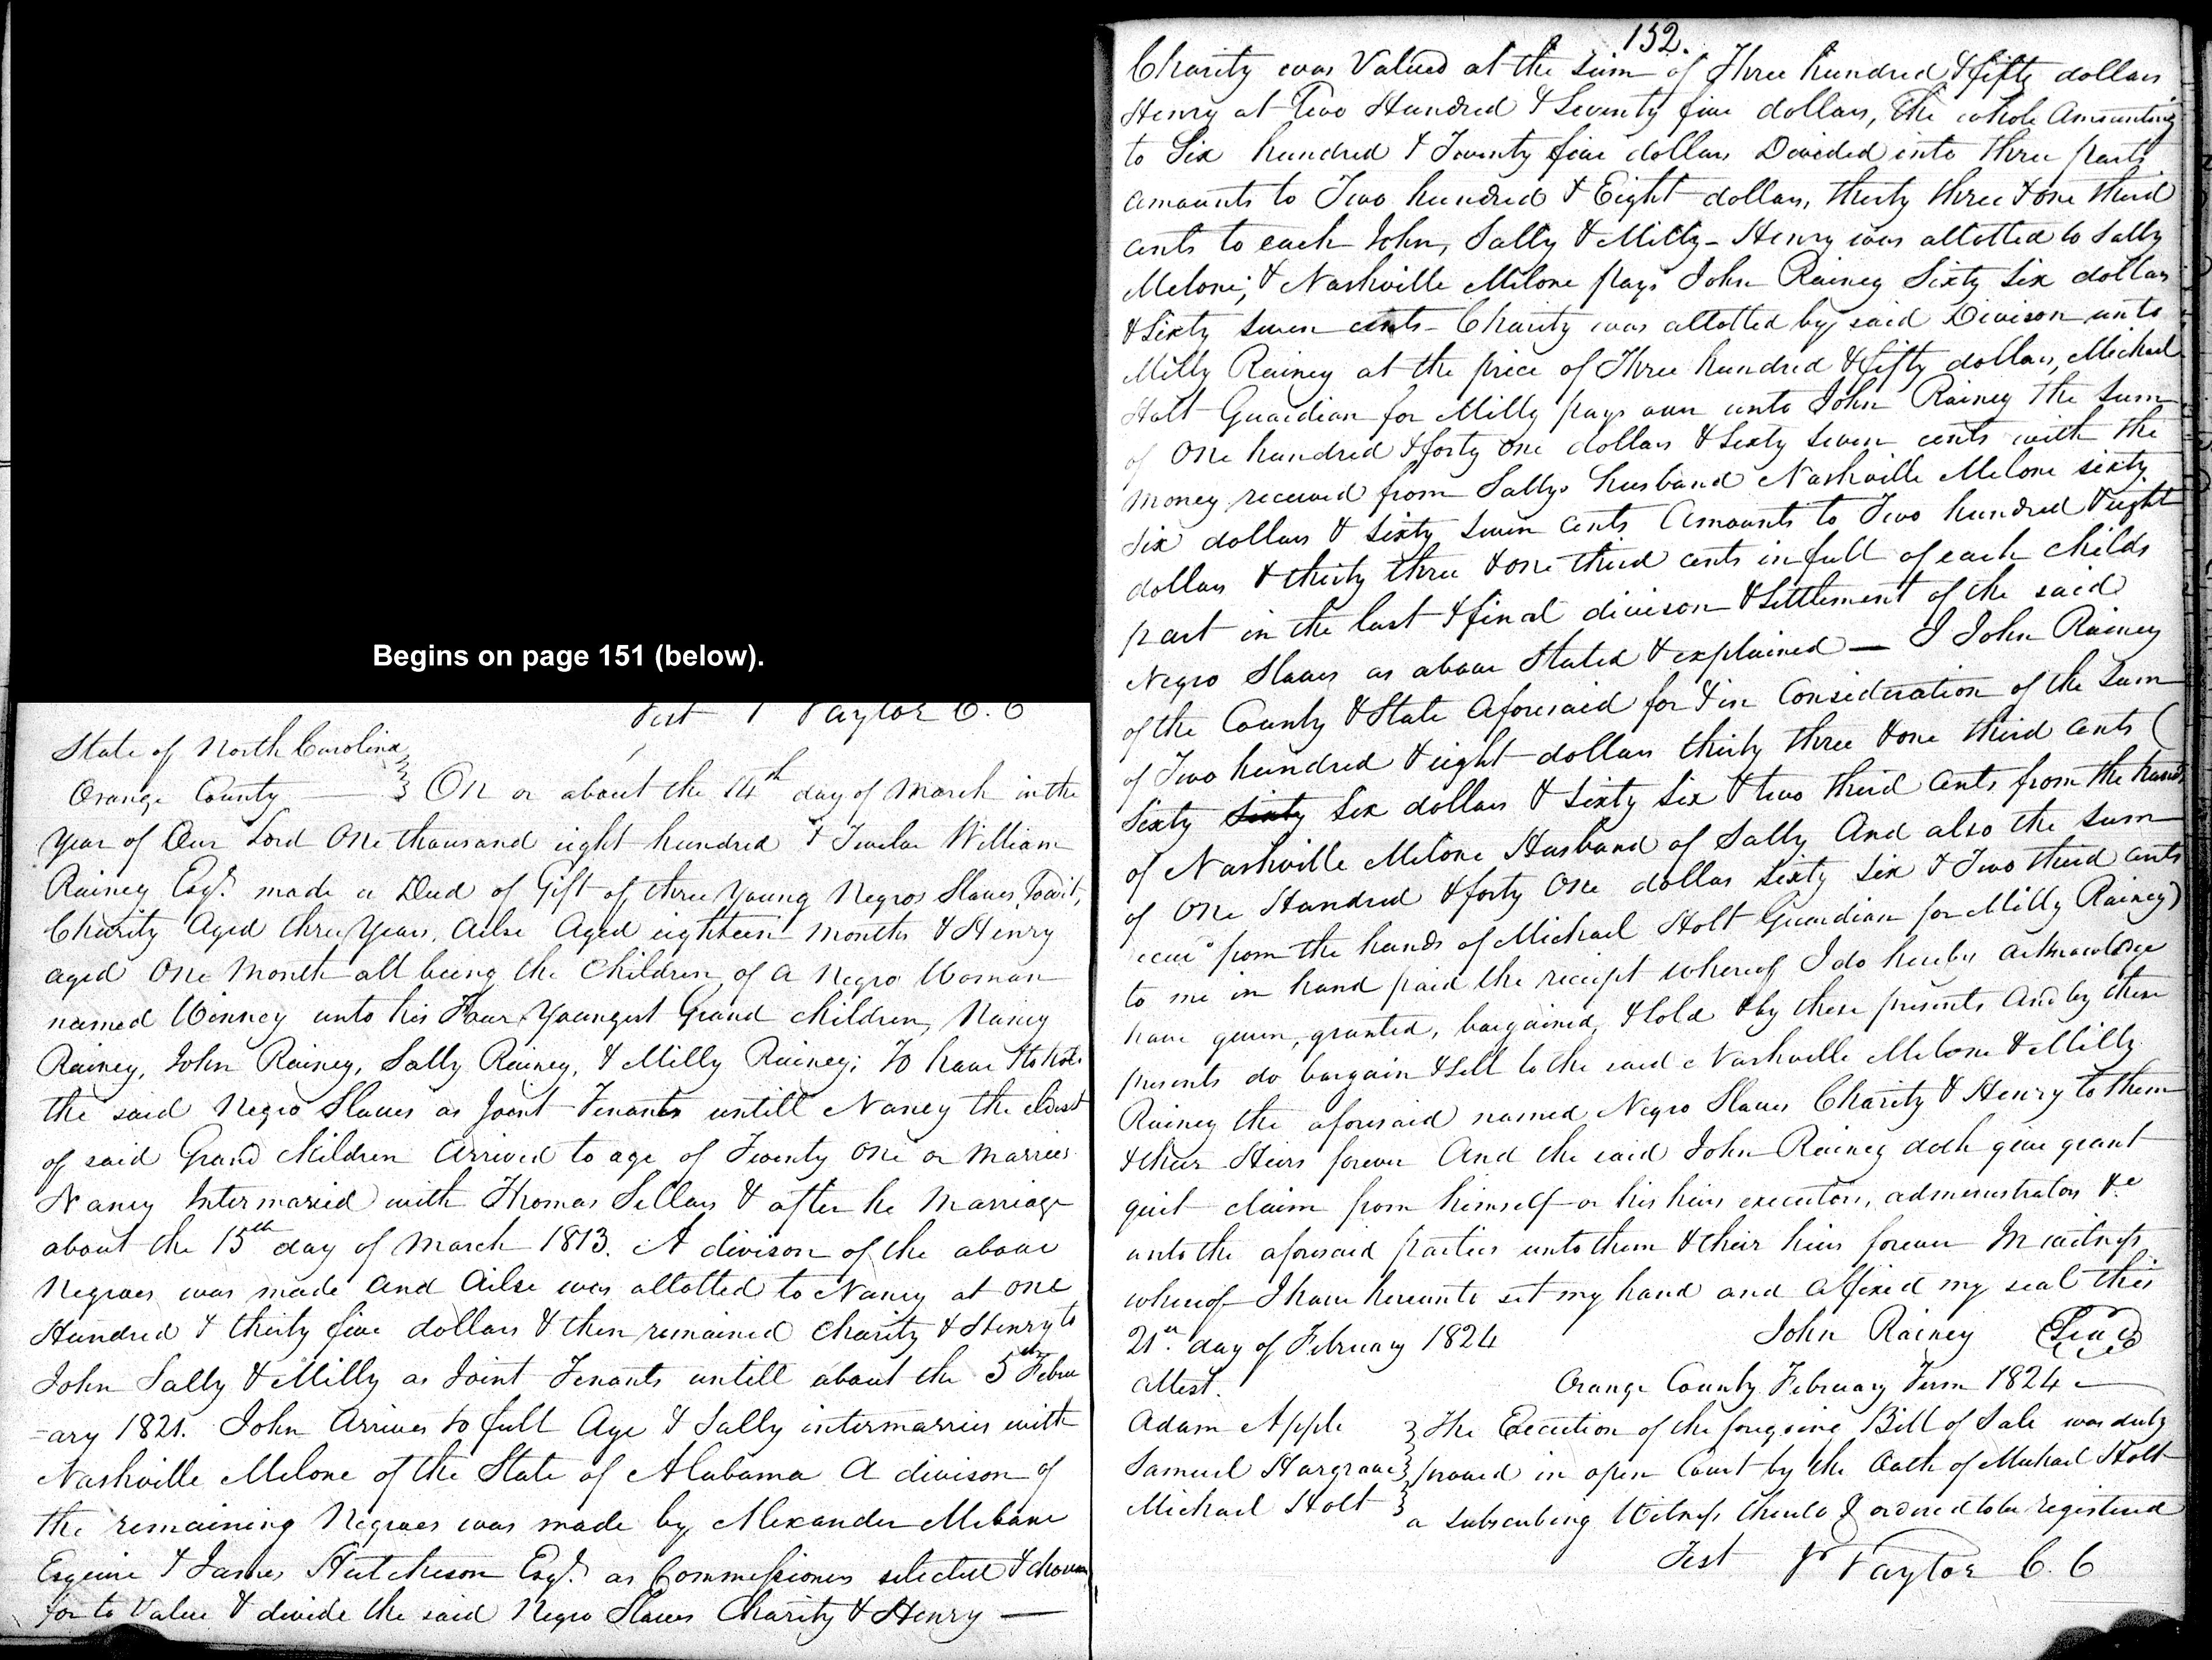 Begins on page 151 (below).
Test J Taylor C. C
State of North Carolina
Orange County } On or about the 14th day of March in the
Year of Our Lord One thousand eight hundred & Twelve William
Rainey Esqr. made a Deed of Gift of three Young Negros Slaves, Towit,
Charity Aged three Years, Ailse Aged eighteen months & Henry
aged One Month all being the Children of a Negro Woman
named Winney unto his Four Youngest Grand children, Nancy
Rainey, John Rainey, Sally Rainey, & Milly Rainey; To have & to hold
the said Negro Slaves as Joint Tenants untill Nancy the eldest
of said Grand Children Arrived to age of Twenty One or Marries
Nancy Intermaried with Thomas Sellars & after he Marriage
about the 15th day of March 1813. A divison of the above
Negroes was made and Ailse was allotted to Nancy at one
Hundred & thirty five dollars & then remained Charity & Henry to
John Sally & Milly as Joint Tenants untill about the 5th Febru
-ary 1821. John Arrives to full Age & Sally intermarries with
Nashville Melone of the State of Alabama A divison of
the remaining Negroes was made by Alexander Mebane
Esquire & James Hutcheson Esqr. as Commissioners selected & chosen
for to Value & divide the said Negro Slaves Charity & Henry —
152.
Charity was Valued at the sum of Three hundred & fifty dollars
Henry at Two Hundred & Seventy five dollars, The whole Amounting
to Six hundred & Twenty five dollars Devided into three parts
amounts to Two hundred & Eight dollars, thirty three & one third
cents to each John, Sally & Milly - Henry was allotted to Sally
Melone; & Nashville Melone pays John Rainey Sixty Six dollars
& Sixty Seven cents - Charity was allotted by said Divison unto
Milly Rainey at the price of Three hundred & fifty dollars, Michael
Holt Guardian for Milly pays over unto John Rainey the Sum
of One hundred & forty one dollars & Sixty Seven cents with the
Money received from Sallys husband Nashville Melone sixty
six dollars & Sixty Seven Cents Amounts to Two hundred & eight
dollars & thirty three & one third cents in full of each childs
part in the last & final divison & Settlement of the said
Negro Slaves as above Stated & explained — I John Rainey
of the County & State Aforesaid for & in Consideration of the Sum
of Two hundred & eight dollars thirty three & one third cents (
Sixty sixty Six dollars & Sixty Six & two third Cents from the hands
of Nashville Melone Husband of Sally And also the sum
of One Hundred & forty One dollars sixty six & Two third cents
recevd from the hands of Michael Holt Guardian for Milly Rainey)
to me in hand paid the receipt whereof I do hereby acknowledge
have given, granted, bargained, & sold & by these presents And by these
presents do bargain & sell to the said Nashville Melone & Milly
Rainey the aforesaid named Negro Slaves Charity & Henry to them
& their Heirs forever And the said John Rainey doth give grant
quit claim from himself or his heirs executors, administrators &c
unto the aforesaid parties unto them & their heirs forever In witness
whereof I have hereunto set my hand and affixed my seal this
21st. day of February 1824 John Rainey (Seal)
Attest. Orange County February Term 1824 —
Adam Apple } The Execution of the foregoing Bill of Sale was duly
Samuel Hargrave } proved in open Court by the Oath of Michael Holt
Michael Holt } a subscribing Witness thereto & ordered to be registered
Test J Taylor C. C